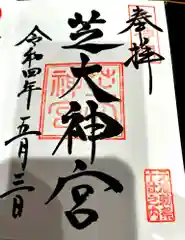 奉拝
芝大神宮
令和四年五月三日